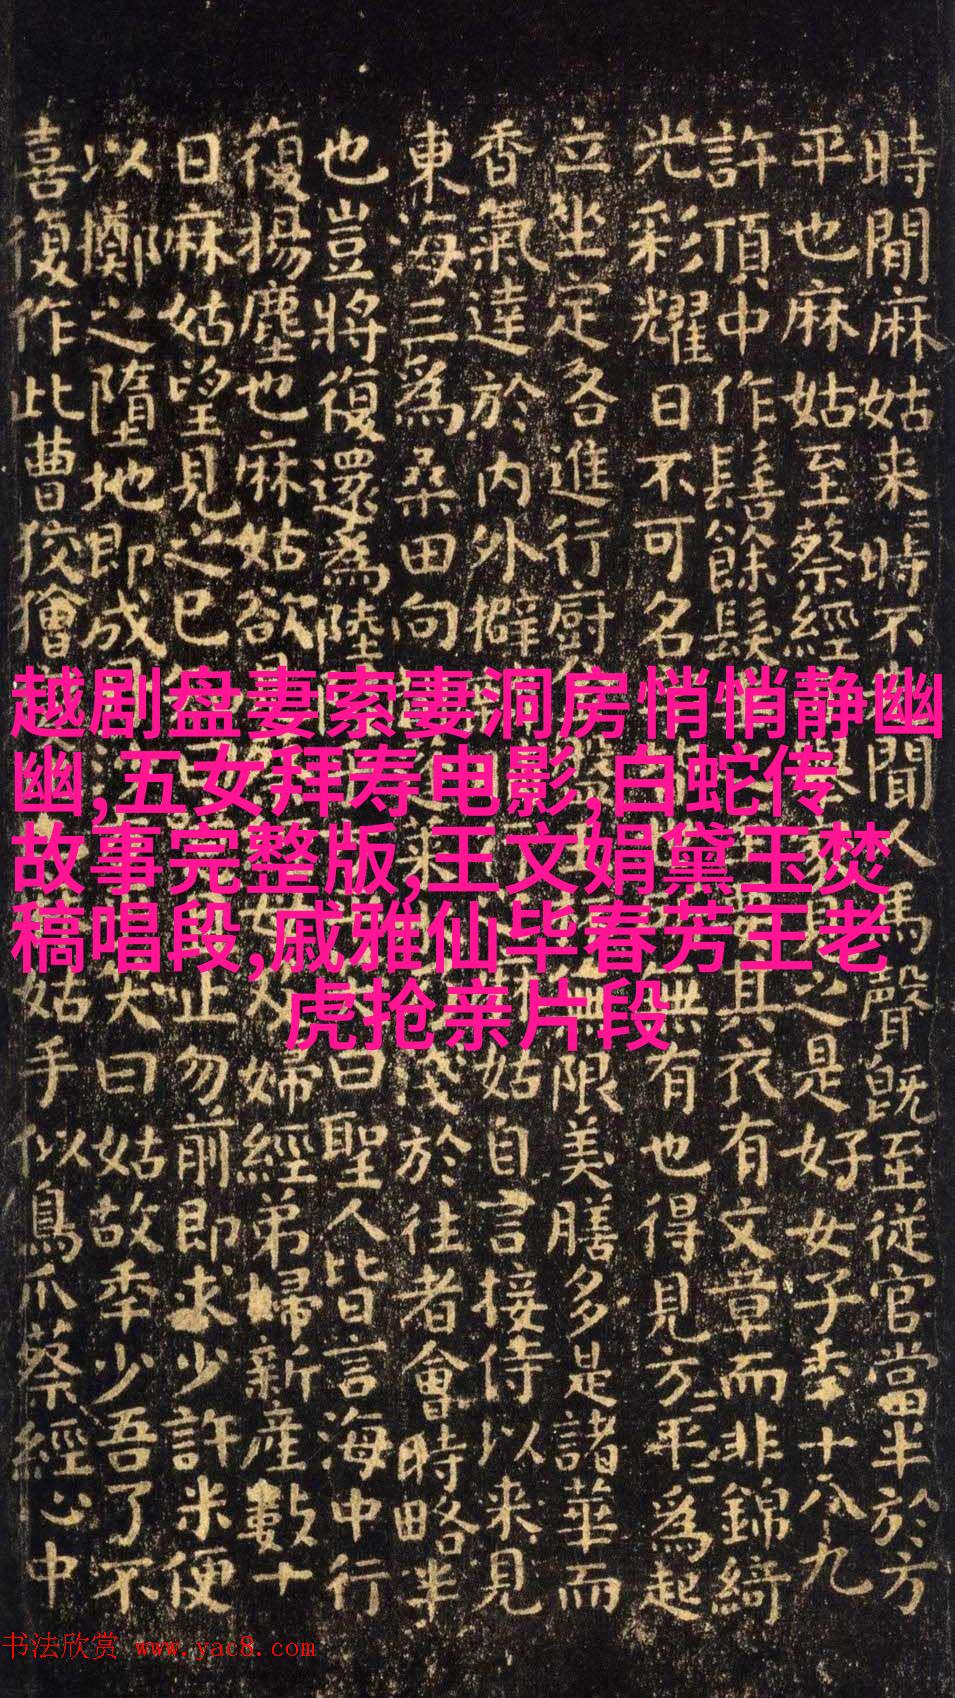 時間麻姑来=時不聞人馬聲既至從官當半於方
平也麻姑至蔡經舉見之是好女子季十八九
許頂中作髻餘髮其衣有文章而非錦綺
光彩耀日不可名無有也得見方=平=為起
立坐定各進行廚無限美膳多是諸華而
香氣達於内外擗姑自言接侍以来見
東海三為桑田向淺於往者會時略半
也豈將復還為陸曰聖人皆言海中行
復揚塵也麻姑欲婦經弟婦新產數十
日麻姑望見之已止勿前即求少許米便
以擲之墮地即成曰姑故季少吾了不
喜復作此曹狡獪姑手似鳥爪蔡經心中
越剧盘妻索妻洞房悄悄静幽
幽,五女拜寿电影,白蛇传
故事完整版,王文娟黛玉焚
稿唱段,戚雅仙毕春芳王老
虎抢亲片段
书法欣赏 www.yac8.com